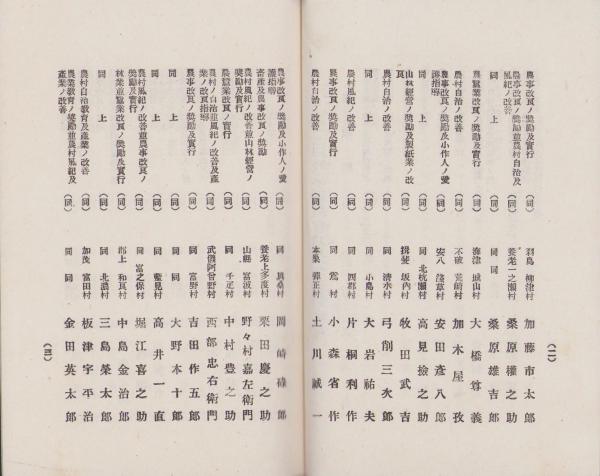 農事改良ノ奬勵及實行 (同) 羽島 柳津村 加藤市太郎
農事改良ノ奬勵並農村自治及風紀ノ改善 (同) 養老 一之瀬村 桑原權之助
同 上 (同) 同 同 桑原雄吉郎
農蠶業改良ノ奬勵及實行 (同) 海津 城山村 大橋尊義
農村自治ノ改善 (同) 不破 荒崎村 加木屋孜
農事改良ノ奬勵及小作人ノ愛護指導 (同) 安八 淺草村 安田彥八郎
同 上 (同) 同 北杭瀬村 高見撿之助
山林經營ノ奬勵及製紙業ノ改良 (同) 揖斐 坂內村 牧田武吉
農村自治ノ改善 (同) 同 淸水村 弓削三次郎
同 上 (同) 同 小島村 大岩祐夫
農村風紀ノ改善 (同) 同 西郡村 片桐利作
農事改良ノ奬勵 (同) 同 鶯村 小森省作
農村自治ノ改善 (同) 本巢 彈正村 土川誠一
(二)
農事改良ノ奬勵及小作人ノ愛護指導 (同) 同 眞桑村 岡崎𥙿郎
畜產及農事改良ノ奬勵 (同) 養老 上多度村 栗田慶之助
農村風紀ノ改善並山林經營ノ奬勵及實行 (同) 山縣 富波村 野々村嘉左衞門
農蠶業改良ノ實行 (同) 同 千疋村 中村豊之助
農村ノ自治並風紀ノ改善及產業ノ改良指導 (同) 武儀 下曾野村 西部忠右衞門
農事改良ノ奬勵及實行 (同) 同 富野村 吉田作五郎
同 上 (同) 同 同 大野本十郎
同 上 (同) 同 藍見村 高井一直
農村風紀ノ改善並農事改良ノ奬勵及實行 (同) 同 富之保村 堀江喜之助
林業並蠶業改良ノ奬勵及實行 (同) 郡上 和良村 中島金治郎
同 上 (同) 同 北濃村 三島榮太郎
農村自治敎育及產業ノ改善 (同) 加茂 富田村 板津宇平治
農業敎育ノ奬勵並農村風紀及產業ノ改善 (同) 同 同 金田英太郎
(三)